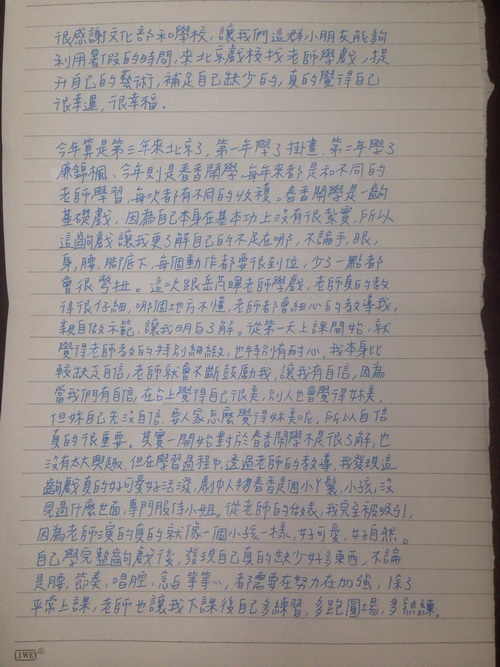 很感謝文化部和學校,讓我們這群小朋友能夠
利用暑假的時間,來北京戲校找老師學戲,提
升自己的藝術,補足自己缺少的,真的覺得自己
很幸運,很幸福。
今年算是第三年來北京了,第一年學了掛畫,第二年學了
廉錦楓、今年則是春香鬧學,每年來都是和不同的
老師學習,每次都有不同的收穫。春香鬧學是一齣
基礎戲,因為自己本身在基本功上沒有很紮實,所以
這齣戲讓我更了解自己的不足在哪,不論手,眼,
身,腰,腳底下,每個動作都要很到位,少了一點都
會很彆扭。這次跟岳芮暉老師學戲,老師真的教
得很仔細,哪個地方不懂,老師都會細心的教導我,
親自做示範,讓我明白了解。從第一天上課開始,就
覺得老師教的特別細緻,也特別有耐心,我本身比
較缺乏自信,老師就會不斷鼓勵我,讓我有自信,因為
當我們有自信,在台上覺得自己很美,別人也會覺得妳美,
但妳自己先沒自信,要人家怎麼覺得妳美呢,所以自信
真的很重要。其實一開始對於春香鬧學不是很了解,也
沒有太大興趣,但在學習過程中,透過老師的教導,我發現這
齣戲真的好可愛好活潑,劇中人物春香是個小丫鬟,小孩,沒
見過什麼世面,專門服侍小姐。從老師的俵,我完全被吸引,
因為老師演的真的就像一個小孩一樣,好可愛,好自然。
自己學完整齣戲後,發現自己真的缺少好多東西,不論
是腰,節奏,唱腔,念白等等,都需要在努力在加強,除了
平常上課,老師也讓我下課後自己多練習,多跑圓場,多熟練。